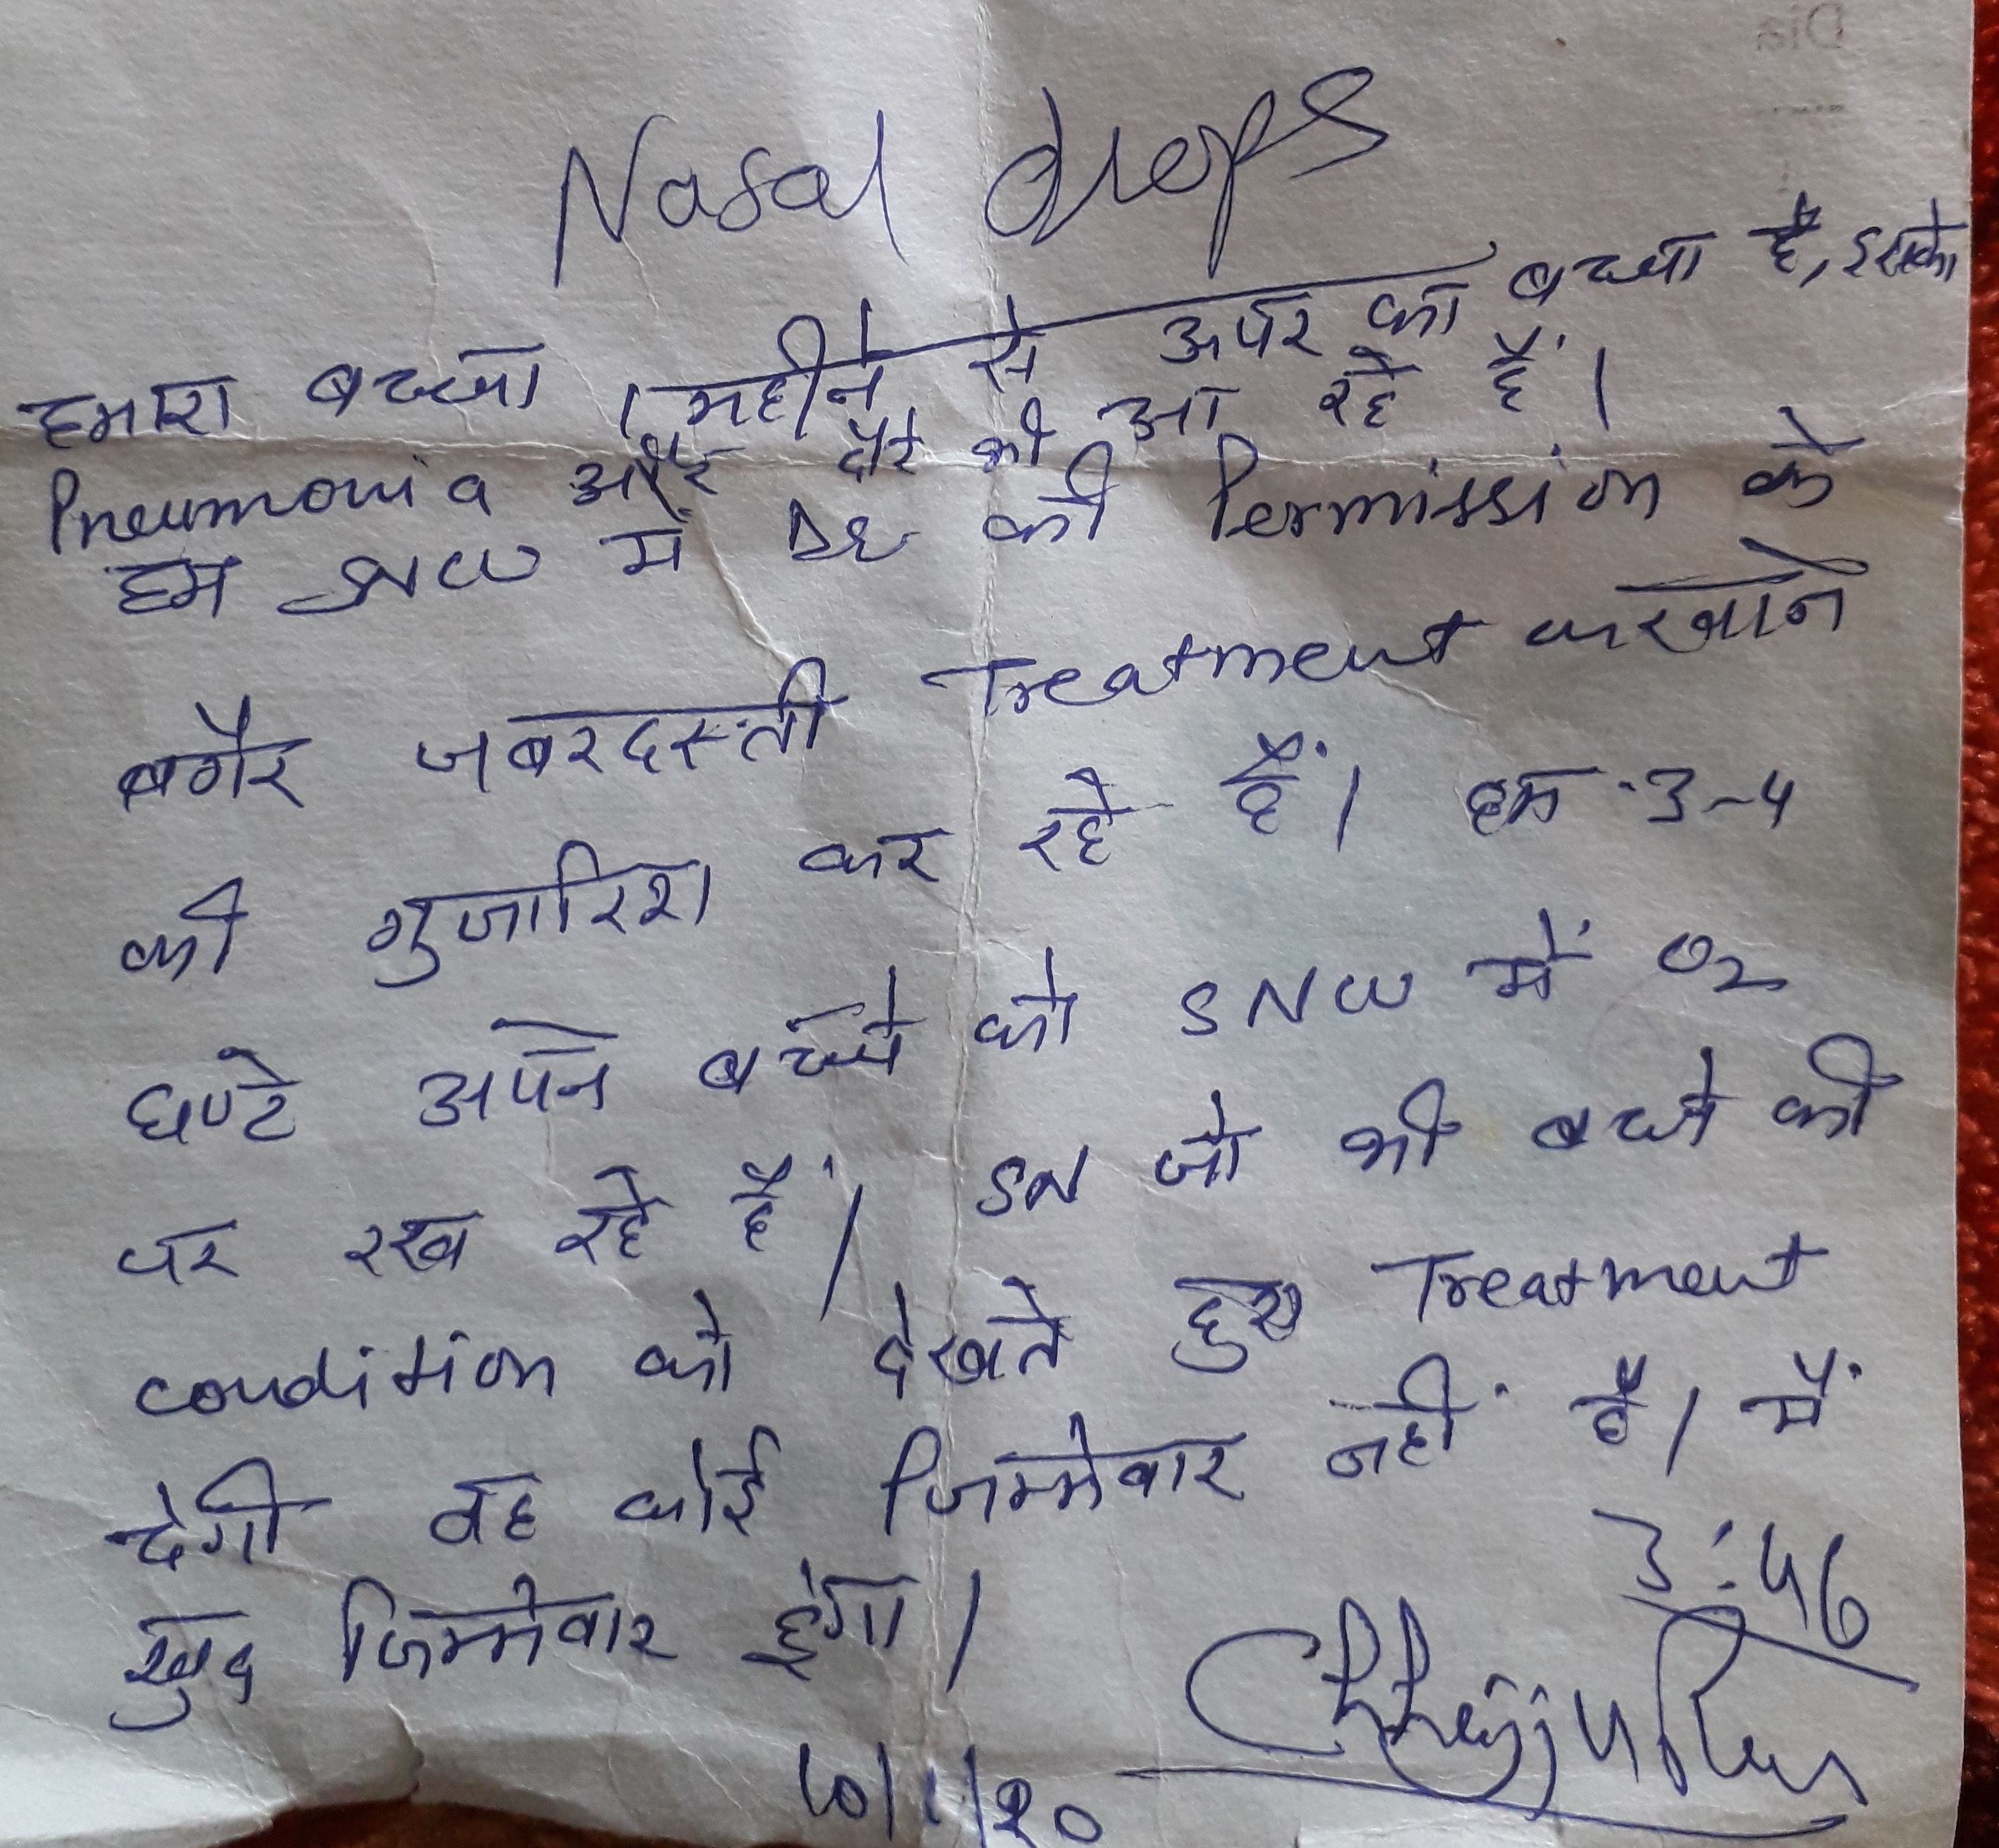 Nasal drops
हमारा बच्चा 1 महीने से ऊपर का बच्चा है, इसको
Pneumonia और दौरे भी आ रहे हैं।
हम SNCU में Dr की Permission के
बगैर जबरदस्ती Treatment करवाने
की गुजारिश कर रहे हैं। हम 3-4
घण्टे अपने बच्चे को SNCU में O2
पर रख रहे हैं। SN जो भी बच्चे की
condition को देखते हुए Treatment
देगी वह कोई जिम्मेवार नहीं है। मैं
खुद जिम्मेवार हूंगा।
3:46
Chhajju Ram
10/1/20